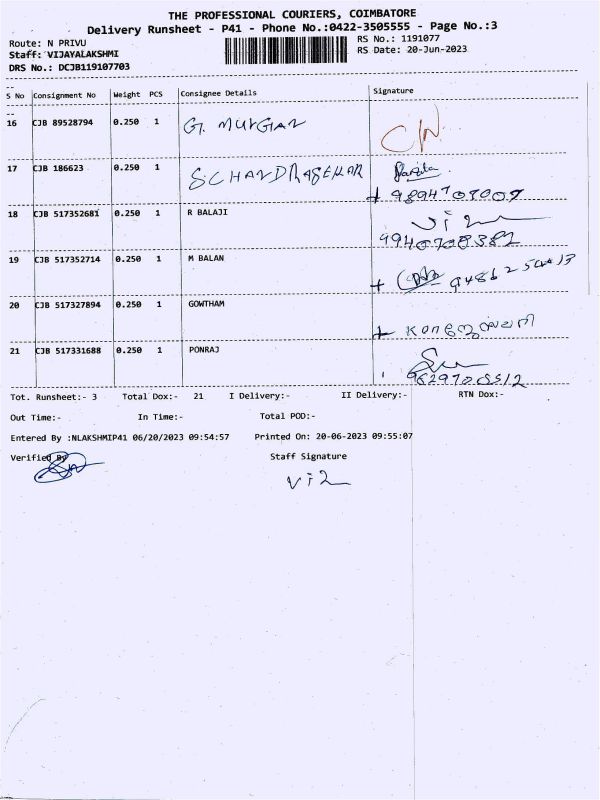 THE PROFESSIONAL COURIERS, COIMBATORE
Delivery Runsheet - P41 - Phone No.:0422-3505555 - Page No.:3
Route: N PRIVU
RS No.: 1191077
Staff: VIJAYALAKSHMI
RS Date: 20-Jun-2023
DRS No.: DCJB119107703
S No Consignment No Weight PCS Consignee Details Signature
16 CJB 89528794 0.250 1 G. MURGIAN
17 CJB 186623 0.250 1 SCHANDRASEKAR
9894707007
18 CJB 517352681 0.250 1 R BALAJI
9940708382
19 CJB 517352714 0.250 1 M BALAN
20 CJB 517327894 0.250 1 GOWTHAM
21 CJB 517331688 0.250 1 PONRAJ
Tot. Runsheet:- 3 Total Dox:- 21 I Delivery:- II Delivery:- RTN Dox:-
Out Time:- In Time:- Total POD:-
Entered By :NLAKSHMIP41 06/20/2023 09:54:57 Printed On: 20-06-2023 09:55:07
Verified By Staff Signature